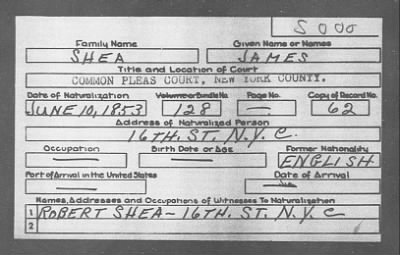 S 000
Family Name Given Name or Names
SHEA JAMES
Title and Location of Court
COMMON PLEAS COURT, NEW YORK COUNTY.
Date of Naturalization Volume or Bundle No. Page No. Copy of Record No.
JUNE 10, 1853 128 — 62
Address of Naturalized Person
16TH. ST. N.Y.C.
Occupation Birth Date or Age Former Nationality
— — ENGLISH
Port of Arrival in the United States Date of Arrival
— —
Names, Addresses and Occupations of Witnesses To Naturalization
1 ROBERT SHEA - 16TH. ST. N.Y.C
2